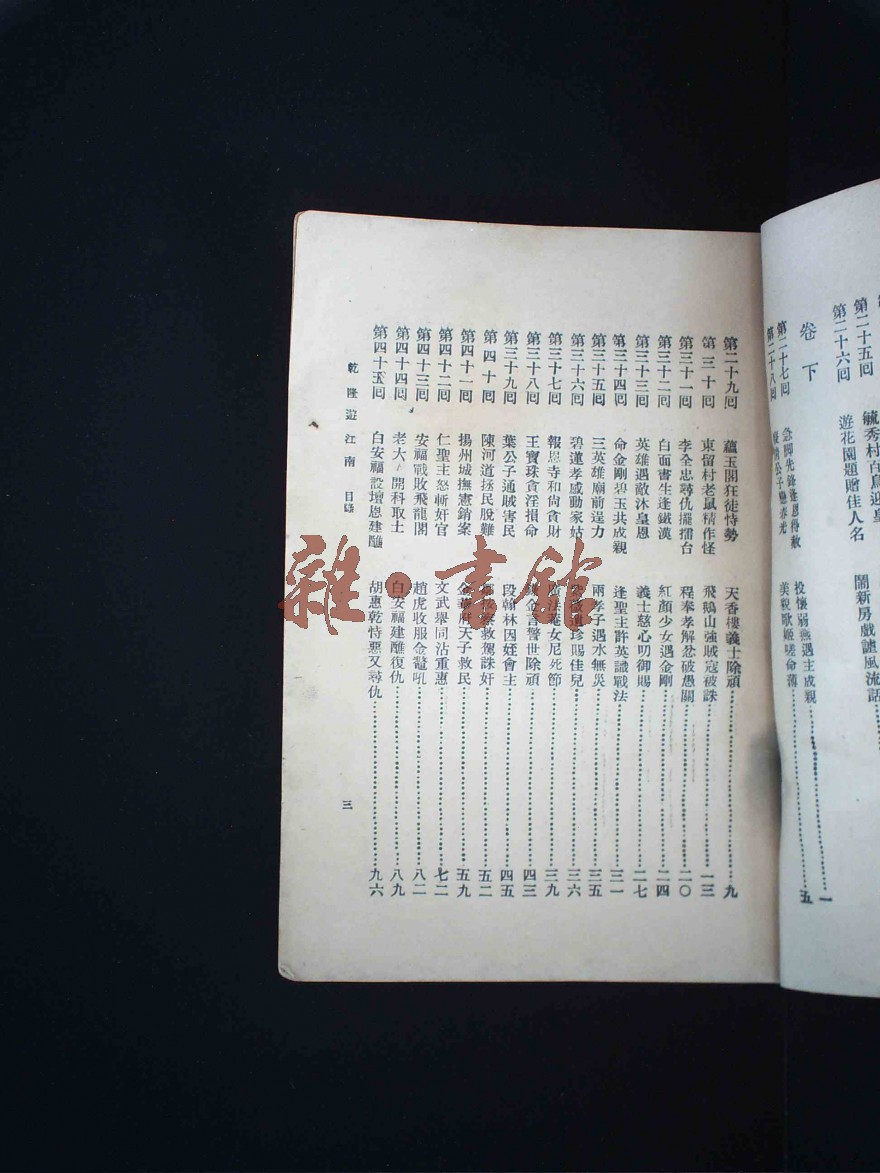 第二十五回　毓秀村百鳥迎皇
第二十六回　遊花園題贈佳人名　鬧新房戲謔風流話
卷下
第二十七回　急脚先鋒逢恩得赦　投懷弱燕遇主成親　一
第二十八回　公子戀春光　美貌歌姬嗟命薄　五
第二十九回　蘊玉閣狂徒恃勢　天香樓義士除頑　九
第三十回　東留村老鼠精作怪　飛鵝山強賊寇被誅　一三
第三十一回　李全忠尋仇擺擂台　程奉孝解忿破愚關　二〇
第三十二回　白面書生逢鐵漢　紅顏少女遇金剛　二四
第三十三回　英雄遇敵沐皇恩　義士慈心叨御賜　二七
第三十四回　命金剛碧玉共成親　逢聖主許英談戰法　三一
第三十五回　三英雄廟前逞力　兩孝子遇水無災　三五
第三十六回　碧蓮孝感動家姑　珍賜佳兒　三六
第三十七回　報恩寺和尚貪財　廣法菴女尼死節　三九
第三十八回　王寶珠貪淫損命　金言警世除頑　四三
第三十九回　葉公子通賊害民　段翰林因姪會主　四五
第四十回　陳河道拯民脫難　救駕誅奸　五二
第四十一回　揚州城撫憲銷案　金華府天子救民　五九
第四十二回　仁聖主怒斬奸官　文武舉同沾重惠　七二
第四十三回　安福戰敗飛龍閣　趙虎收服金鼇吼　八二
第四十四回　老大人開科取士　白安福建醮復仇　八九
第四十五回　白安福設壇恩建醮　胡惠乾恃惡又尋仇　九六
乾隆遊江南　目錄　三
雜·書館